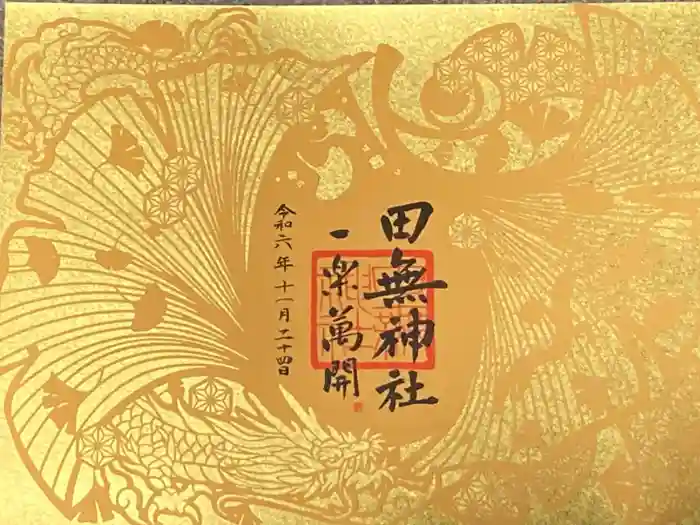 田無神社
一楽萬開
令和六年十一月二十四日